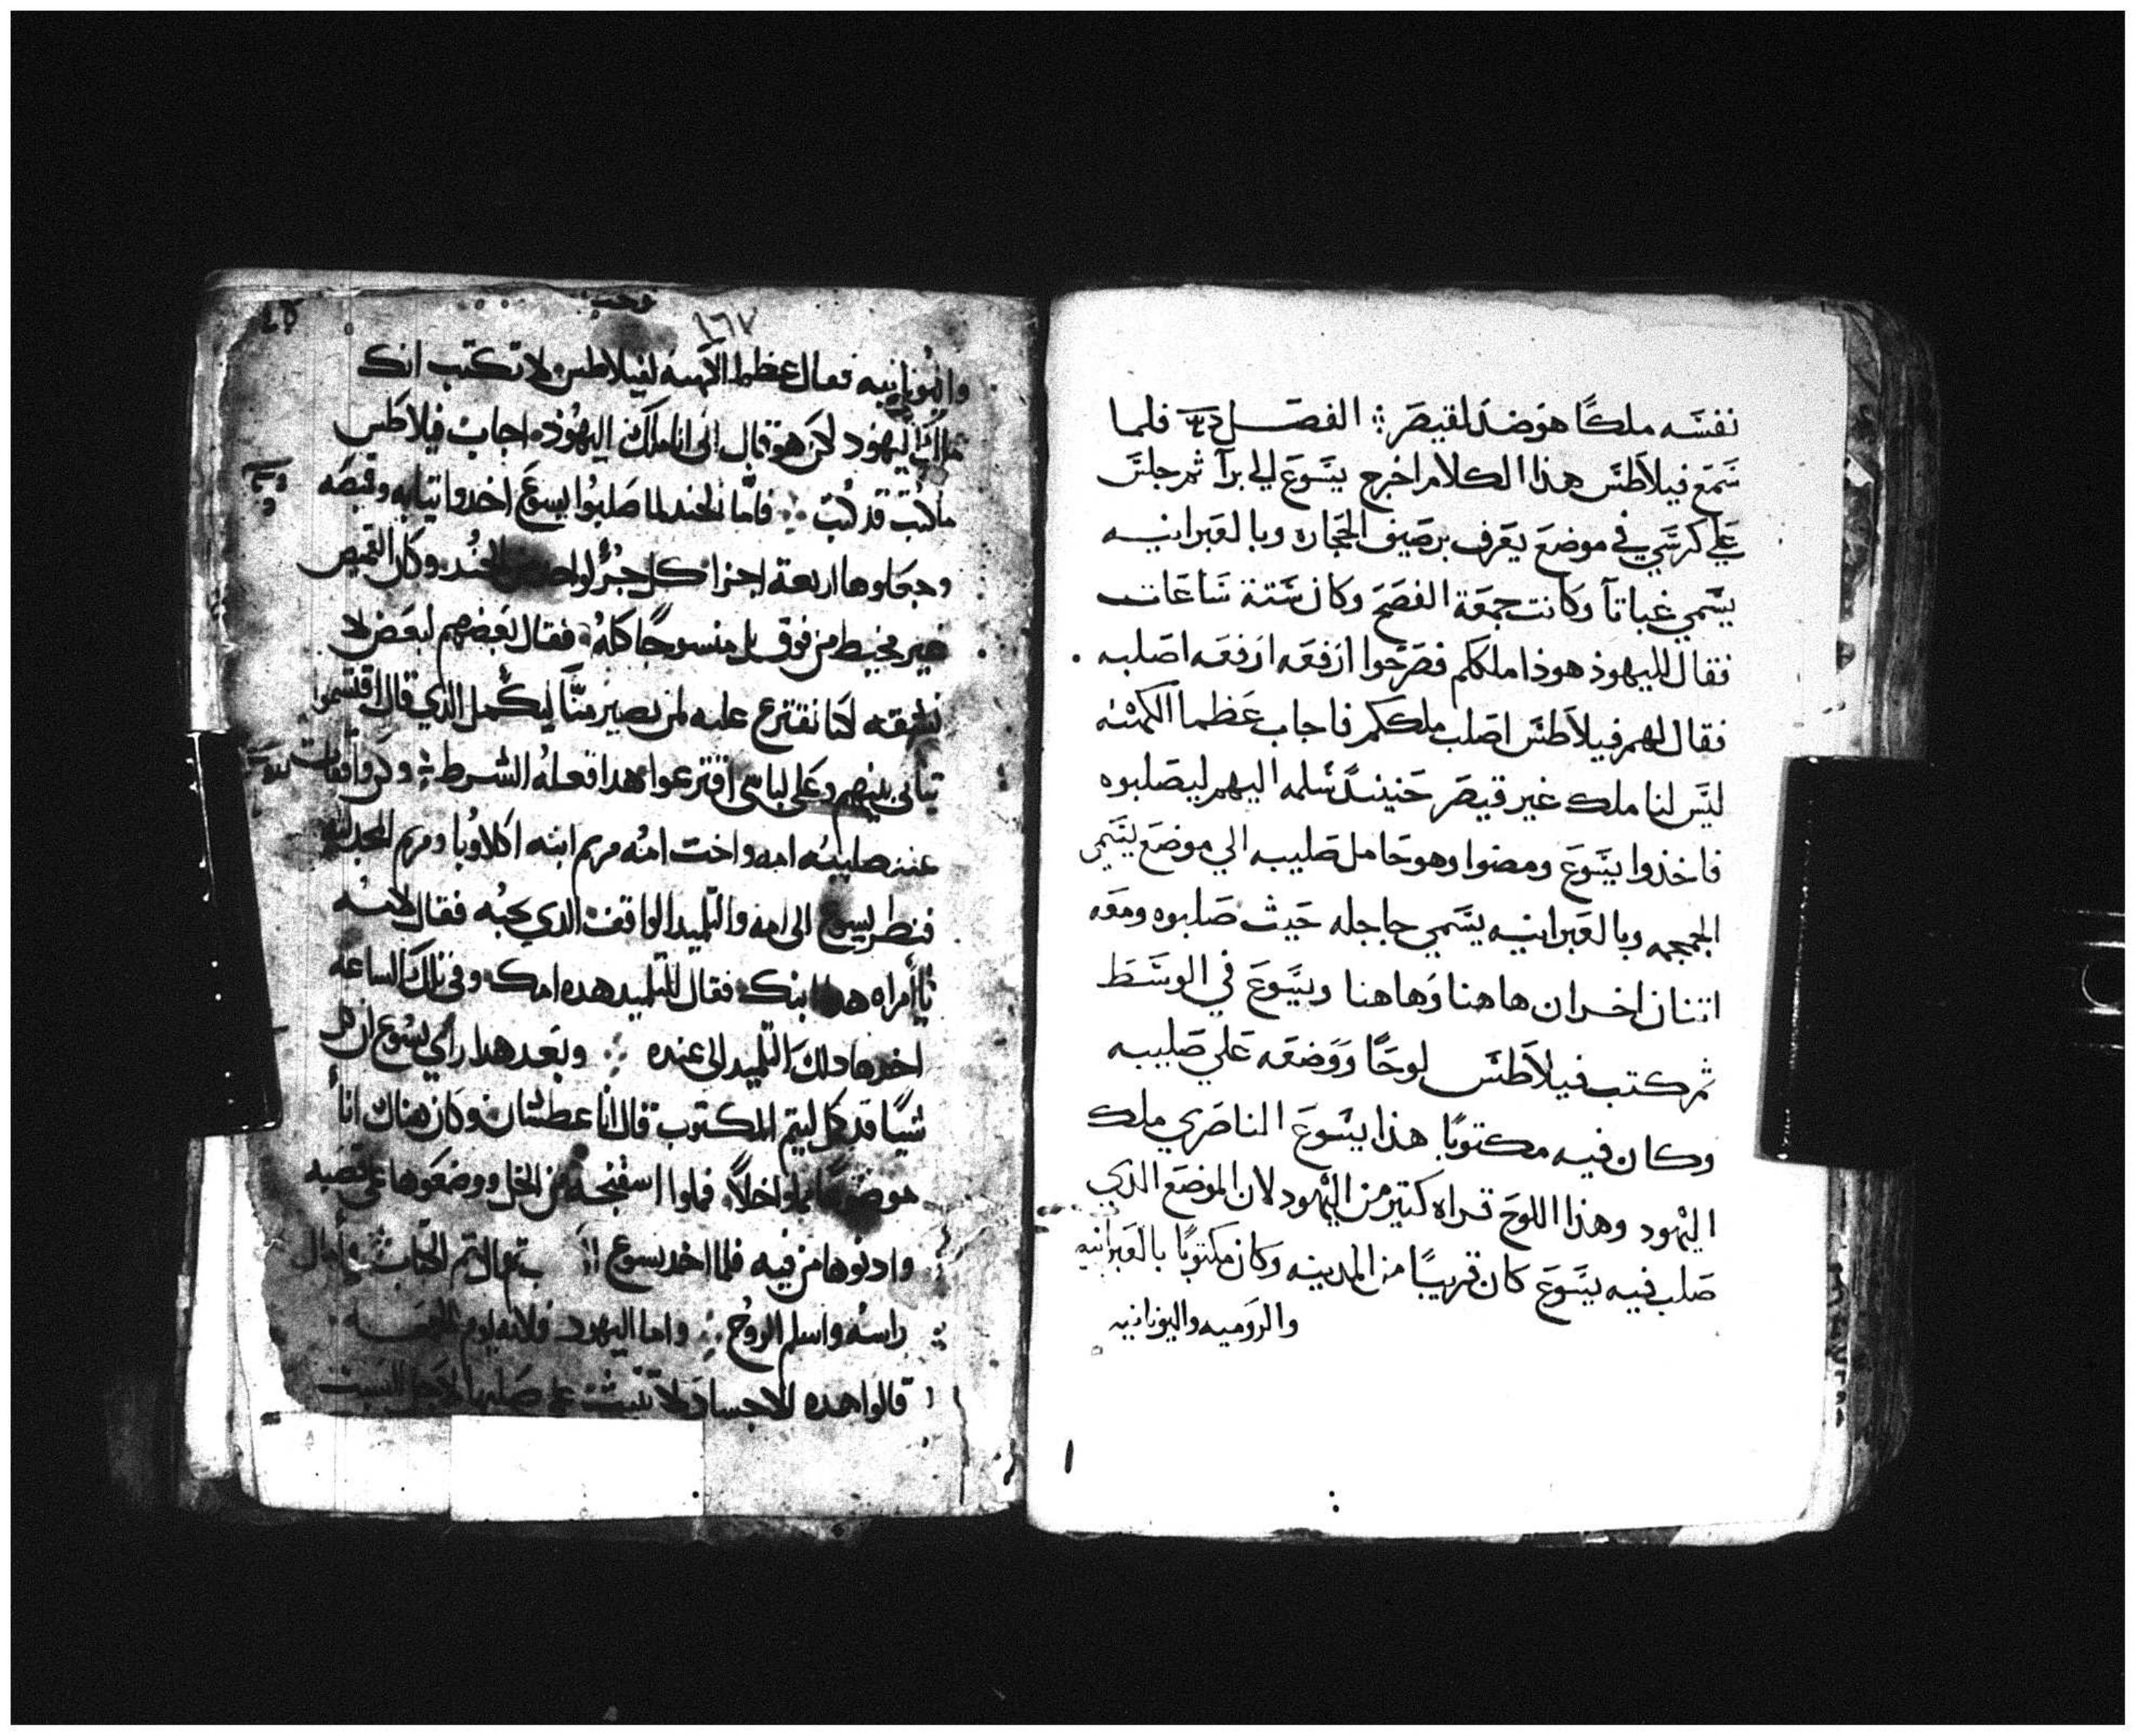 نفسه ملكًا هو ضد لقيصر ⁘ الفصل فلما
سَمَع فيلاطس هذا الكلام اخرج يسوع الي برآ ثم جلس
علي كرسي في موضع يعرف برصيف الحجاره وبالعبرانيه
يسمي غباتآ وكانت جمعة الفصح وكان ستة ساعات
فقال لليهود هوذا ملككم فصرخوا ارفعه ارفعه اصلبه
فقال لهم فيلاطس اصلب ملككم فاجاب عظما الكهنه
ليس لنا ملك غير قيصر حنيئدً سلمه اليهم ليصلبوه
فاخذوا يسوع ومضوا وهو حامل صليبه الي موضع يسمي
الجمجمه وبالعبرانيه يسمي جاجله حيث صلبوه ومعه
اتنان اخران هاهنا وهاهنا ويسوع في الوسط
ثم كتب فيلاطس لوحًا ووضعه علي صليبه
وكان فيه مكتوبًا هذا يسوع الناصري ملك
اليهود وهذا اللوح قراه كتير من اليهود لان الموضع الدي
صلب فيه يسوع كان قريبًا من المدينه وكان مكتوبًا بالعبرانيه
والروميه واليونانيه
١٦٧
واليونانيه فقال عظما الكهنه لفيلاطس لا تكتب انك
ملك اليهود لكن هو قال اني انا ملك اليهود اجاب فيلاطس
ما كتبت قد كتبت ⁘ فاما الجند لما صلبوا يسوع اخدوا تيابه وقميصه
وجعلوها اربعة اجزا كل جزُ لواحد من الجند وكان القميص
غير مخيط من فوق بل منسوجًا كله فقال بعضهم لبعض لا
نشقه لكنا نقترع عليه لمن يصير منّا ليكمل الدي قال اقتسموا
تيابي بينهم وعلي لباسي اقترعوا هدا فعله الشرط ⁘ وكن واقفات
عند صليبه امه واخت امه مريم ابنة اكلاوبا ومريم المجدليه
فنظر يسوع الي امه والتلميد الواقف الدي يحبه فقال لامه
يا امراه هدا ابنك فقال للتلميد هده امك وفي تلك الساعه
اخدها دلك التلميد الي عنده ⁘ وبعد هدا راي يسوع ان كل
شيًا قد كمل ليتم المكتوب قال انا عطشان وكان هناك انا
موضوعًا مملوا خلاً فملوا اسفنجه من الخل ووضعوها علي قصبه
وادنوها من فيه فلما اخد يسوع قال تم الكتاب وامال
راسه واسلم الروح ⁘ واما اليهود فلانه يوم الجمعه
قالوا هده الاجساد لا تتبت علي صلبها لاجل السبت